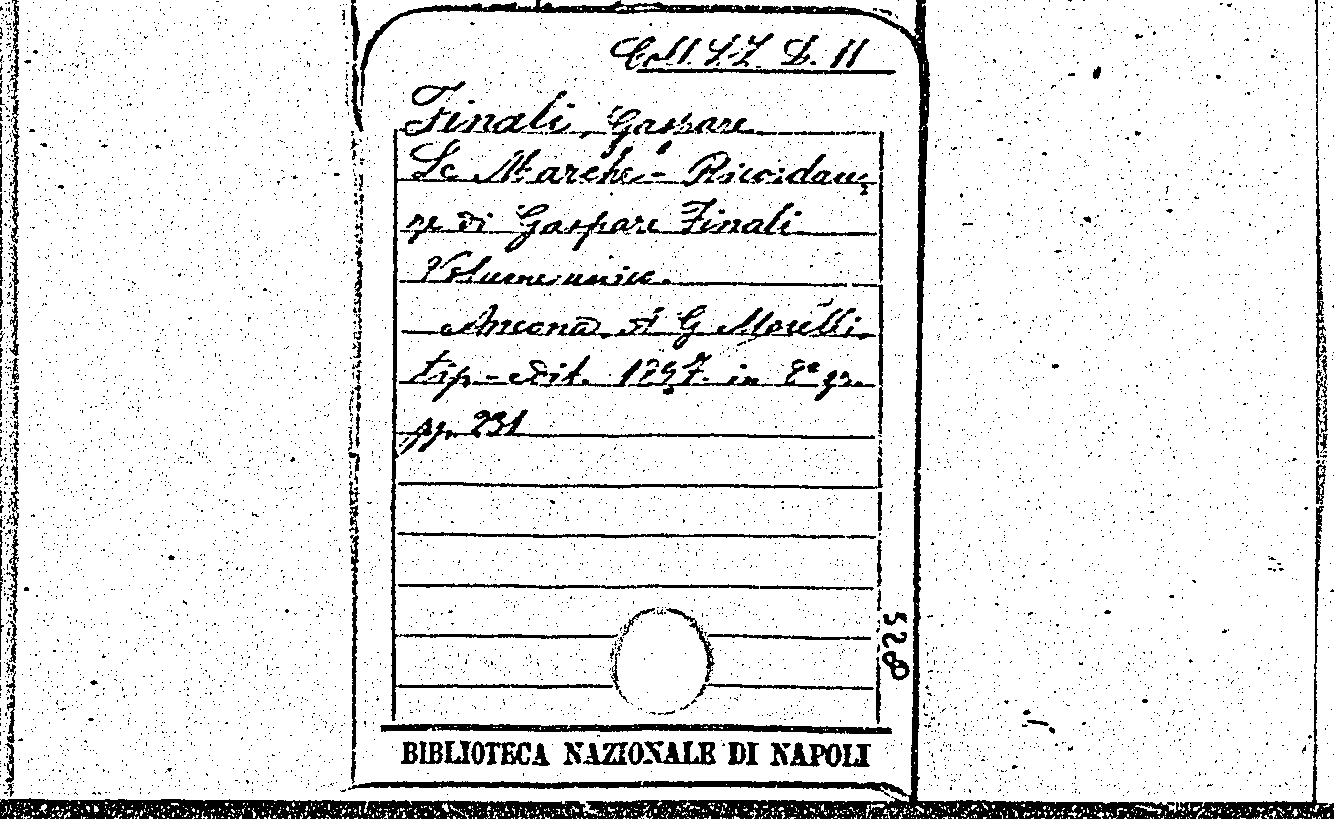 Coll. S.Z. D. 11
Finali, Gaspare
Le Marche - Ricordan,
ze di Gaspare Finali
Volume unico.
Ancona, A G Morelli,
tip-edit. 1897. in 8° gr.
pp. 231
528
BIBLIOTECA NAZIONALE DI NAPOLI